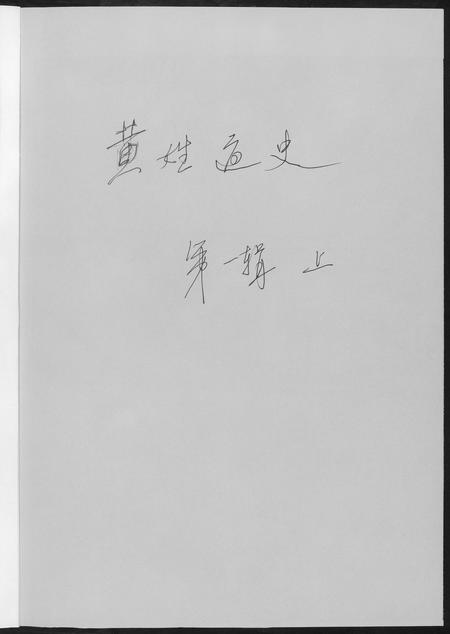 黄姓通史
第一辑 上